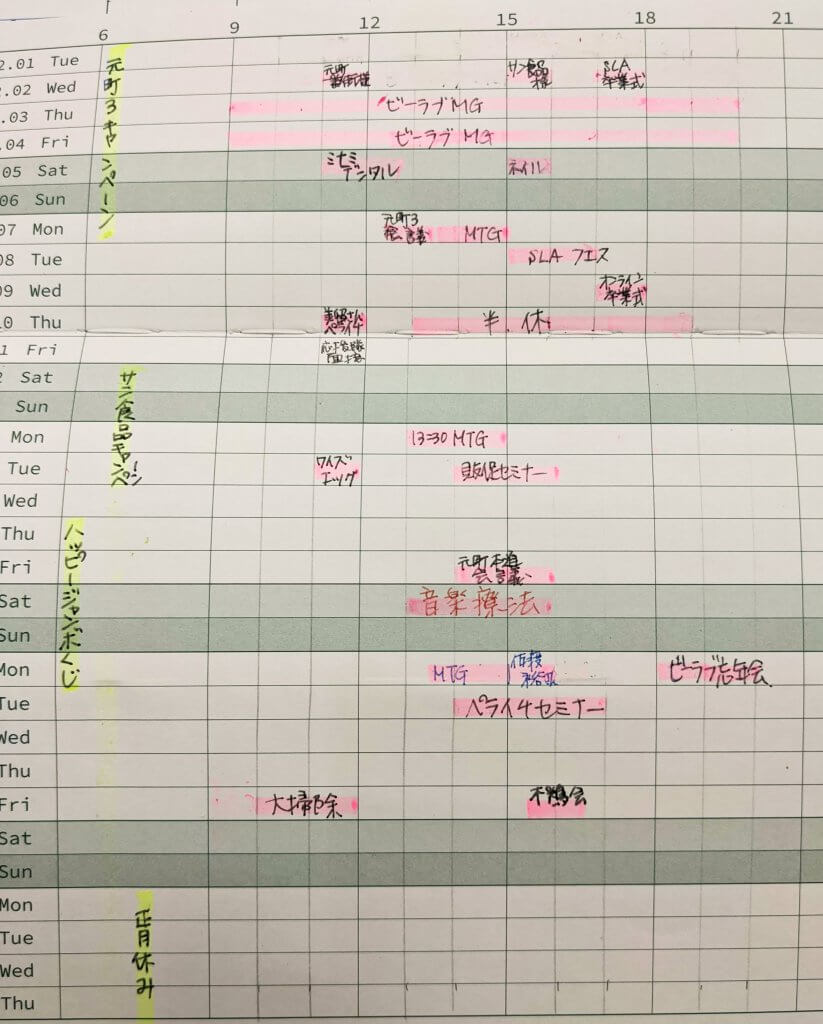 6 9 12 15 18 21
2.01 Tue
元町3キャンペーン
元町
サン食品
様
SLA
卒業式
2.02 Wed
.03 Thu ビーラブMG
.04 Fri ビーラブ MG
05 Sat ミナミ
デンタル
ネイル
06 Sun
07 Mon 元町3
会議
MTG
08 Tue SLA フェス
09 Wed オンライン
卒業式
0 Thu 半.休
ペライチ
1 Fri
2 Sat
サン食品キャンペーン
Sun
Mon 13:30 MTG
Tue ワイズ
エッグ
販促セミナー
Wed
Thu
ハッピージャンボくじ
Fri 元町
会議
Sat 音楽療法
Sun
Mon MTG
ビーラブ忘年会
Tue ペライチセミナー
Wed
Thu
Fri 大掃除
会
Sat
Sun
Mon
正月休み
Tue
Wed
Thu